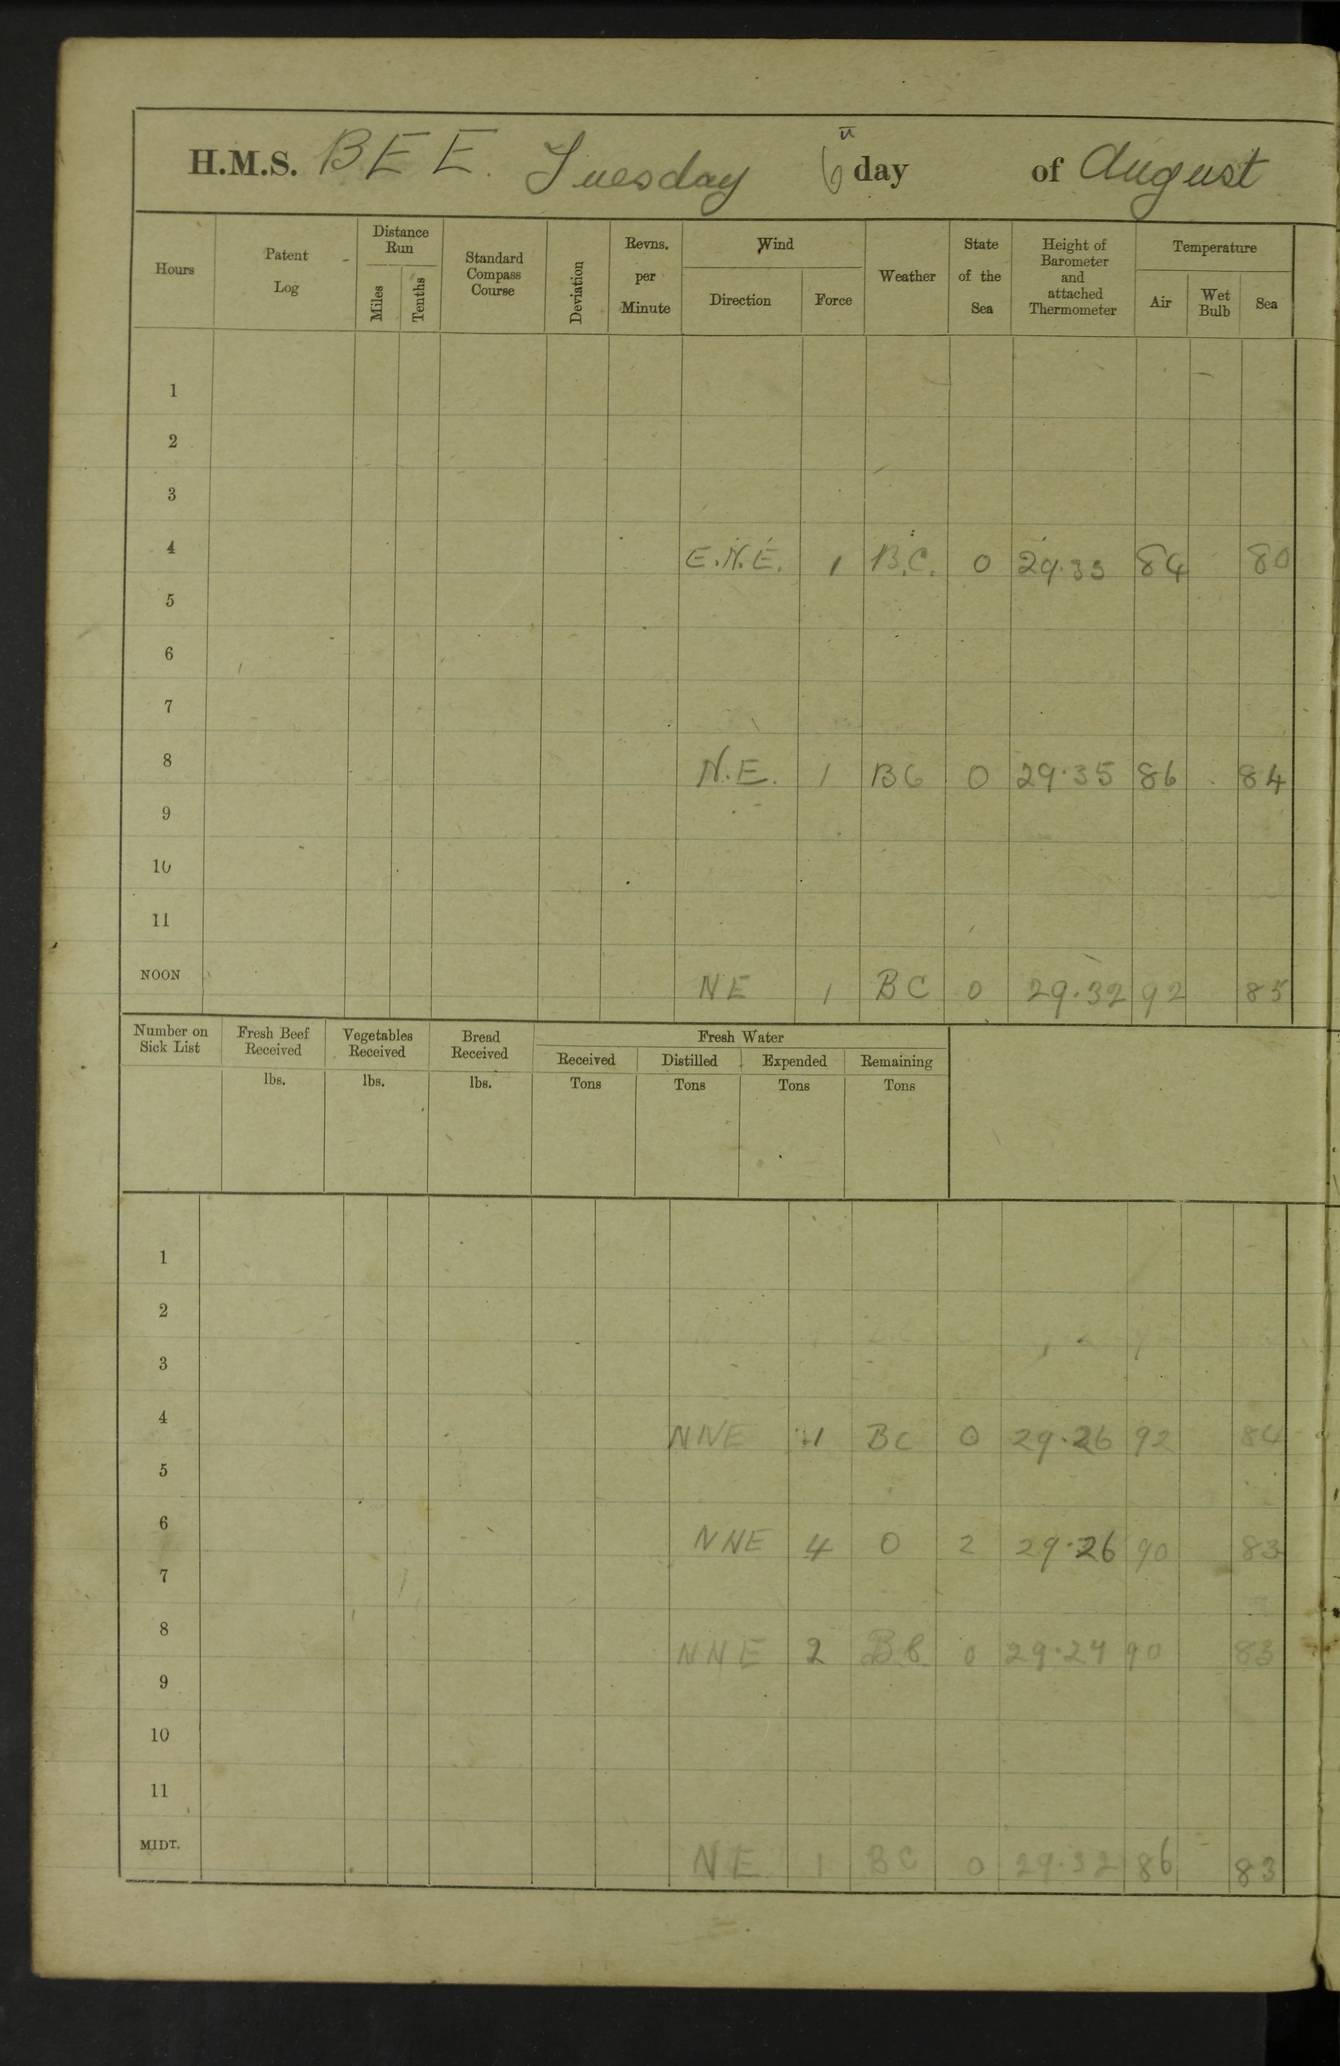 H.M.S. BEE. Tuesday 6th day of August
Hours Patent Log Distance Run Miles Tenths Standard Compass Course Deviation Revns. per Minute Wind Direction Force Weather State of the Sea Height of Barometer and attached Thermometer Temperature Air Wet Bulb Sea
1
2
3
4 E.N.E. 1 B.C. 0 29.33 84 80
5
6
7
8 N.E. 1 BC 0 29.35 86 84
9
10
11
NOON NE 1 BC 0 29.32 92 85
Number on Sick List Fresh Beef Received Vegetables Received Bread Received Fresh Water
Received Distilled Expended Remaining
lbs. lbs. lbs. Tons Tons Tons Tons
1
2
3
4 NNE 1 BC 0 29.26 92 84
5
6 NNE 4 0 2 29.26 90 83
7
8 NNE 2 0 90 83
9
10
11
MIDT. NE 1 BC 0 29.32 86 83